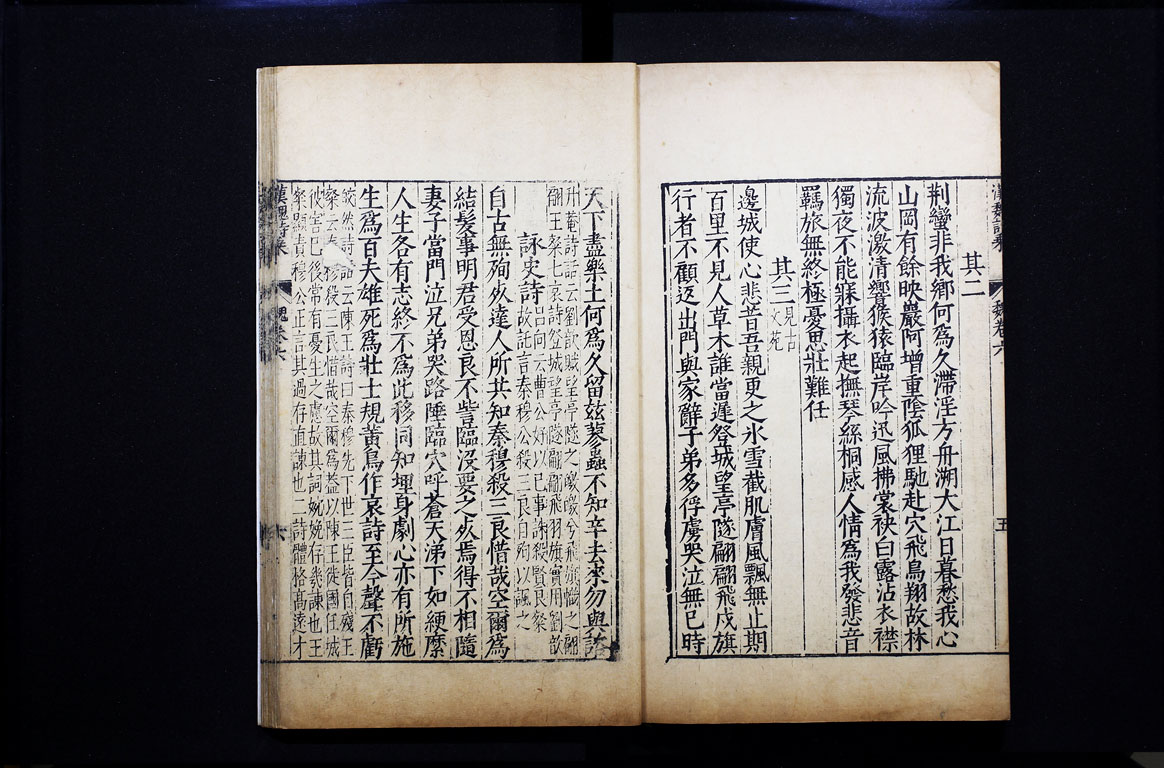 其二
荆蠻非我鄉何爲久滯淫方舟溯大江日暮愁我心
山岡有餘映巖阿增重陰狐狸馳赴穴飛鳥翔故林
流波激清響猴猿臨岸吟迅風拂裳袂白露沾衣襟
獨夜不能寐攝衣起撫琴絲桐感人情爲我發悲音
羈旅無終極憂思壯難任
其三見古文苑
邊城使心悲昔吾親更之氷雪截肌膚風飄無止期
百里不見人草木誰當遲登城望亭隧翩翩飛戍旗
行者不顧返出門與家辭子弟多俘虜哭泣無已時
五
天下盡樂土何爲久留兹蓼蟲不知辛去來勿與諮
升菴詩話云劉歆賦望亭隧之皦皦兮飛旗幟之翩
翩王粲七哀詩登城望亭隧翩翩飛羽旗實用劉歆
詠史詩呂向云曹公好以己事誅殺賢良粲
故託言秦穆公殺三良自殉以諷之
自古無殉死達人所共知秦穆殺三良惜哉空爾爲
結髮事明君受恩良不訾臨沒要之死焉得不相隨
妻子當門泣兄弟哭路陲臨穴呼蒼天涕下如綆縻
人生各有志終不爲此移同知埋身劇心亦有所施
生爲百夫雄死爲壯士規黃鳥作哀詩至今聲不虧
皎然詩話云陳王詩曰秦穆先下世三臣皆自殘王
粲云秦穆殺三良惜哉空爾爲蓋以陳王徙國任城
彼害已後常有憂生之慮故其詞婉娩存幾諫也王
粲顯責穆公正言其過存直諫也二詩體格高遠才